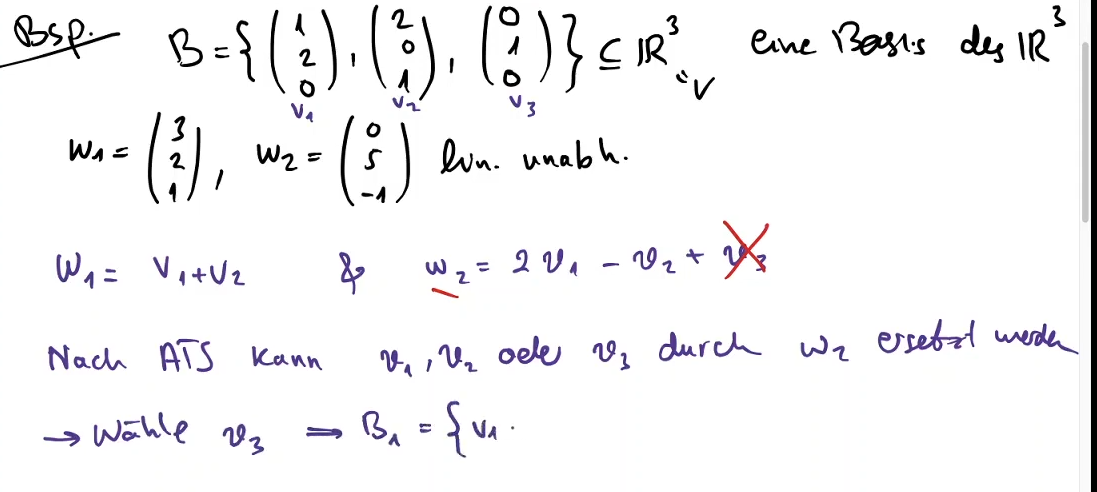 Bsp. B = { (1 2 0), (2 0 1), (0 1 0) } ⊆ ℝ³ eine Basis des ℝ³
v₁ v₂ v₃ =V
w₁ = (3 2 1), w₂ = (0 5 -1) lin. unabh.
w₁ = v₁+v₂ & w₂ = 2 v₁ - v₂ + v₃
Nach ATS kann v₁, v₂ oder v₃ durch w₂ ersetzt werden
→ Wähle v₃ ⇒ B₁ = { v₁